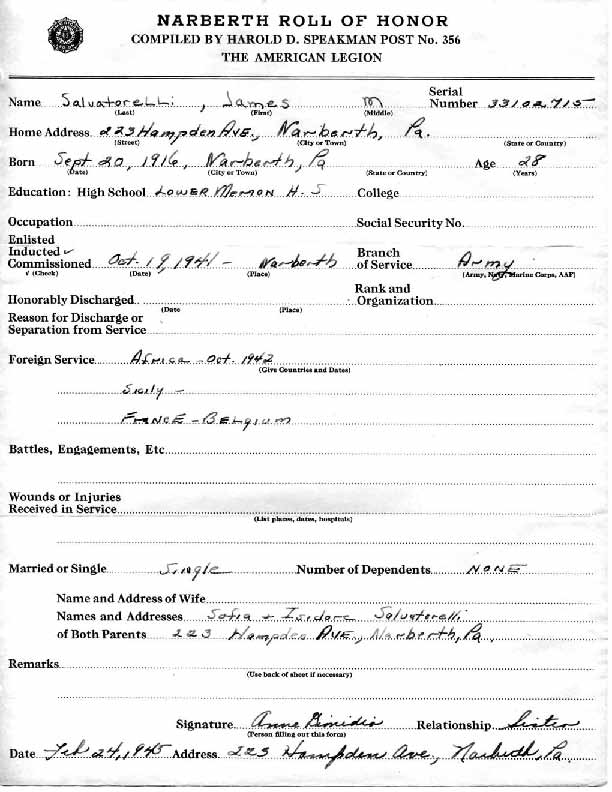 NARBERTH ROLL OF HONOR
COMPILED BY HAROLD D. SPEAKMAN POST No. 356
THE AMERICAN LEGION
Name Salvatorelli, James M Serial Number 33102715
(Last) (First) (Middle)
Home Address 223 Hampden Ave., Narberth, Pa.
(Street) (City or Town) (State or Country)
Born Sept 20, 1916, Narberth, Pa Age 28
(Date) (City or Town) (State or Country) (Years)
Education: High School Lower Merion H. S College
Occupation Social Security No.
Enlisted
Inducted ✓ Branch
Commissioned Oct. 19, 1941 - Narberth of Service Army
√ (Check) (Date) (Place) (Army, Navy, Marine Corps, AAF)
Rank and
Honorably Discharged Organization
(Date (Place)
Reason for Discharge or
Separation from Service
Foreign Service Africa - Oct. 1942
(Give Countries and Dates)
Sicily -
France - Belgium
Battles, Engagements, Etc
Wounds or Injuries
Received in Service
(List places, dates, hospitals)
Married or Single Single Number of Dependents NONE
Name and Address of Wife
Names and Addresses Sofia + Isidore Salvatorelli
of Both Parents 223 Hampden Ave., Narberth, Pa.
Remarks
(Use back of sheet if necessary)
Signature Anne Relationship Sister
(Person filling out this form)
Date Feb 24, 1945 Address 223 Hampden Ave, Narberth, Pa.